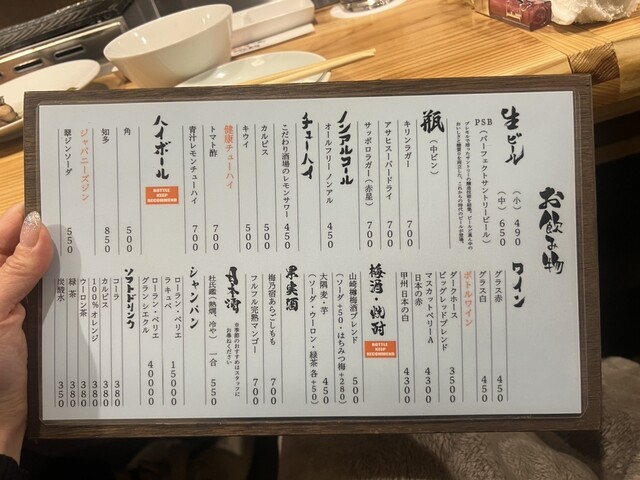 お飲み物
生ビール
PSB
(パーフェクトサントリービール)
(小) 490
(中) 650
瓶
(中ビン)
キリンラガー 700
アサヒスーパードライ 700
サッポロラガー(赤星) 700
ノンアルコール
オールフリー ノンアル 450
チューハイ
こだわり酒場のレモンサワー 450
カルピス 500
キウイ 500
健康チューハイ
トマト酢 700
青汁レモンチューハイ 700
ハイボール
BOTTLE
KEEP
RECOMMEND
角 500
知多 850
ジャパニーズジン
翠ジンソーダ 550
ワイン
グラス赤 450
グラス白 450
ボトルワイン
ダークホース
ビッグレッドブレンド 3500
マスカットベリーA
日本の赤 4300
甲州 日本の白 4300
梅酒・焼酎
BOTTLE
KEEP
RECOMMEND
山崎樽梅酒ブレンド 500
(ソーダ+50・はちみつ梅+280)
大隅 麦・芋 450
(ソーダ・ウーロン・緑茶 各+50)
果実酒
梅乃宿あらごしもも 700
フルフル完熟マンゴー 700
日本酒
※季節のおすすめはスタッフに
お尋ねください
杜氏鑑(熱燗、冷や) 一合 550
シャンパン
ローラン・ペリエ
ラ キュベ 15000
ローラン・ペリエ
グラン シエクル 40000
ソフトドリンク
コーラ 380
カルピス 380
100%オレンジ 380
ウーロン茶 380
緑茶 380
炭酸水 350